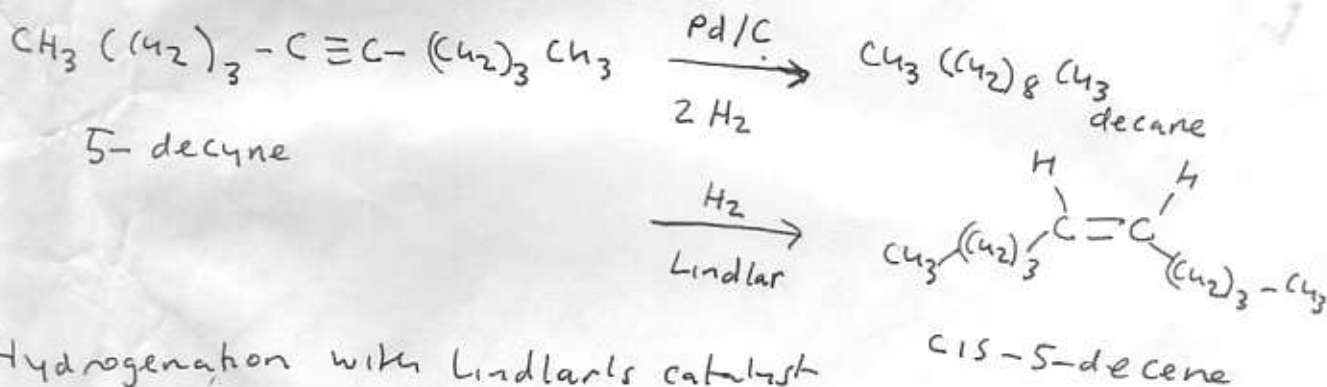 CH3 (CH2)3 - C ≡ C - (CH2)3 CH3
Pd/C
2 H2
CH3 (CH2)8 CH3
decane
5- decyne
H2
Lindlar
H H
CH3 (CH2)3 C = C (CH2)3 - CH3
cis-5-decene
Hydrogenation with Lindlar's catalyst